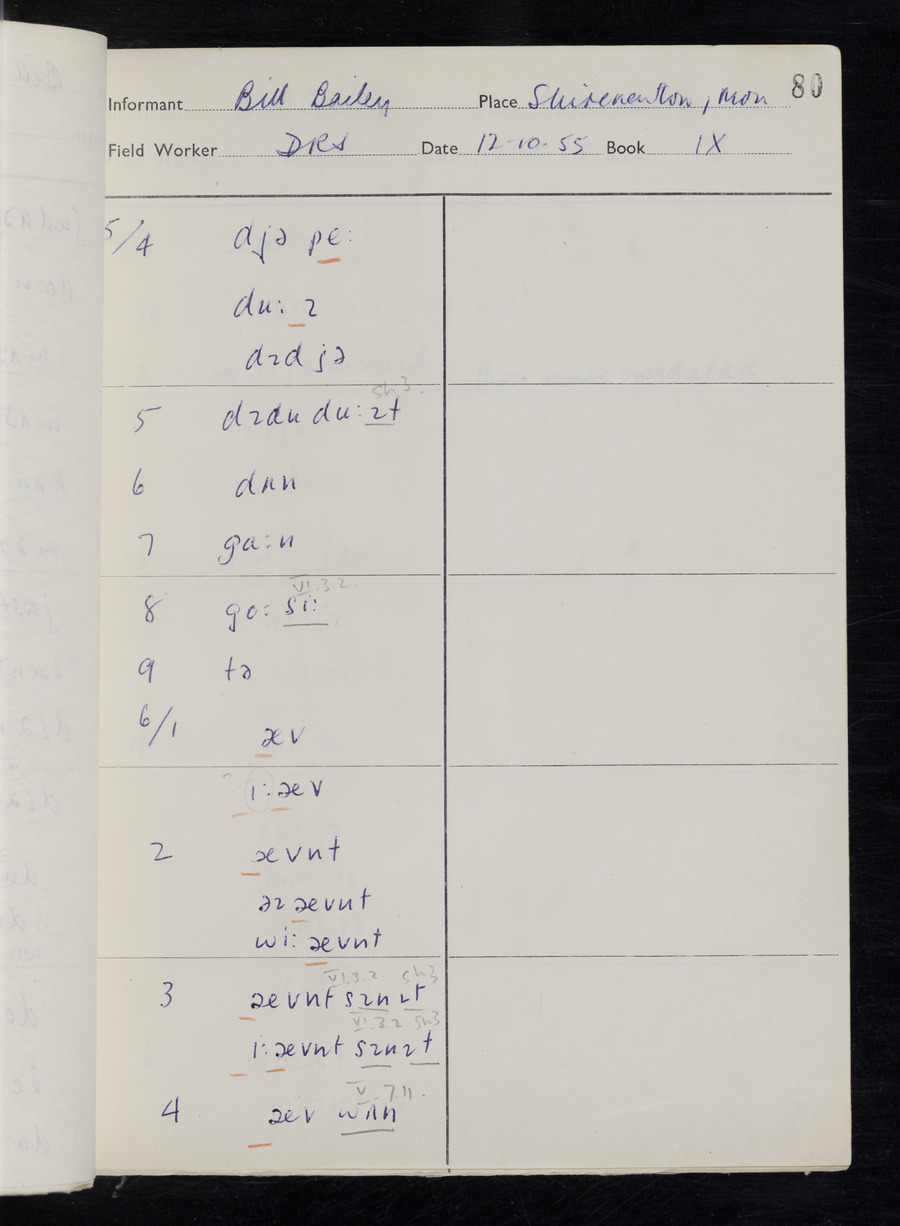 80
Informant Bill Bailey Place Shirenewton, Mon
Field Worker DRS Date 12-10-55 Book IX
5/4 djə pe:
du: ɪ
dɪdjə
sh3.
5 dɪdn du: ɪt
6 dʌn
7 ga:n
VI.3.2.
8 go: si:
9 tə
6/1 æv
i: æv
2 ævnt
əɪ ævnt
wi: ævnt
VI.3.2 sh3
3 ævnt sɪn ɪt
VI.3.2 sh3
i: ævnt sɪn ɪt
V.7.11.
4 æv wʌn